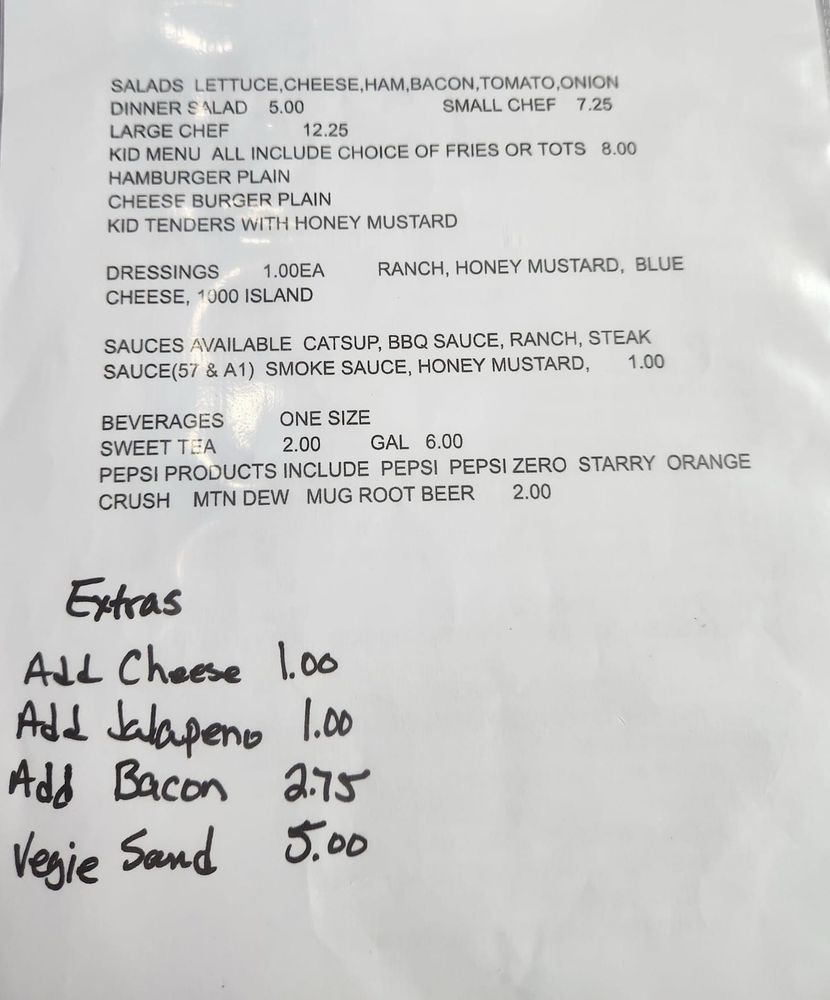 SALADS LETTUCE,CHEESE,HAM,BACON,TOMATO,ONION
DINNER SALAD 5.00 SMALL CHEF 7.25
LARGE CHEF 12.25
KID MENU ALL INCLUDE CHOICE OF FRIES OR TOTS 8.00
HAMBURGER PLAIN
CHEESE BURGER PLAIN
KID TENDERS WITH HONEY MUSTARD
DRESSINGS 1.00EA RANCH, HONEY MUSTARD, BLUE
CHEESE, 1000 ISLAND
SAUCES AVAILABLE CATSUP, BBQ SAUCE, RANCH, STEAK
SAUCE(57 & A1) SMOKE SAUCE, HONEY MUSTARD, 1.00
BEVERAGES ONE SIZE
SWEET TEA 2.00 GAL 6.00
PEPSI PRODUCTS INCLUDE PEPSI PEPSI ZERO STARRY ORANGE
CRUSH MTN DEW MUG ROOT BEER 2.00
Extras
Add Cheese 1.00
Add Jalapeno 1.00
Add Bacon 2.75
Vegie Sand 5.00